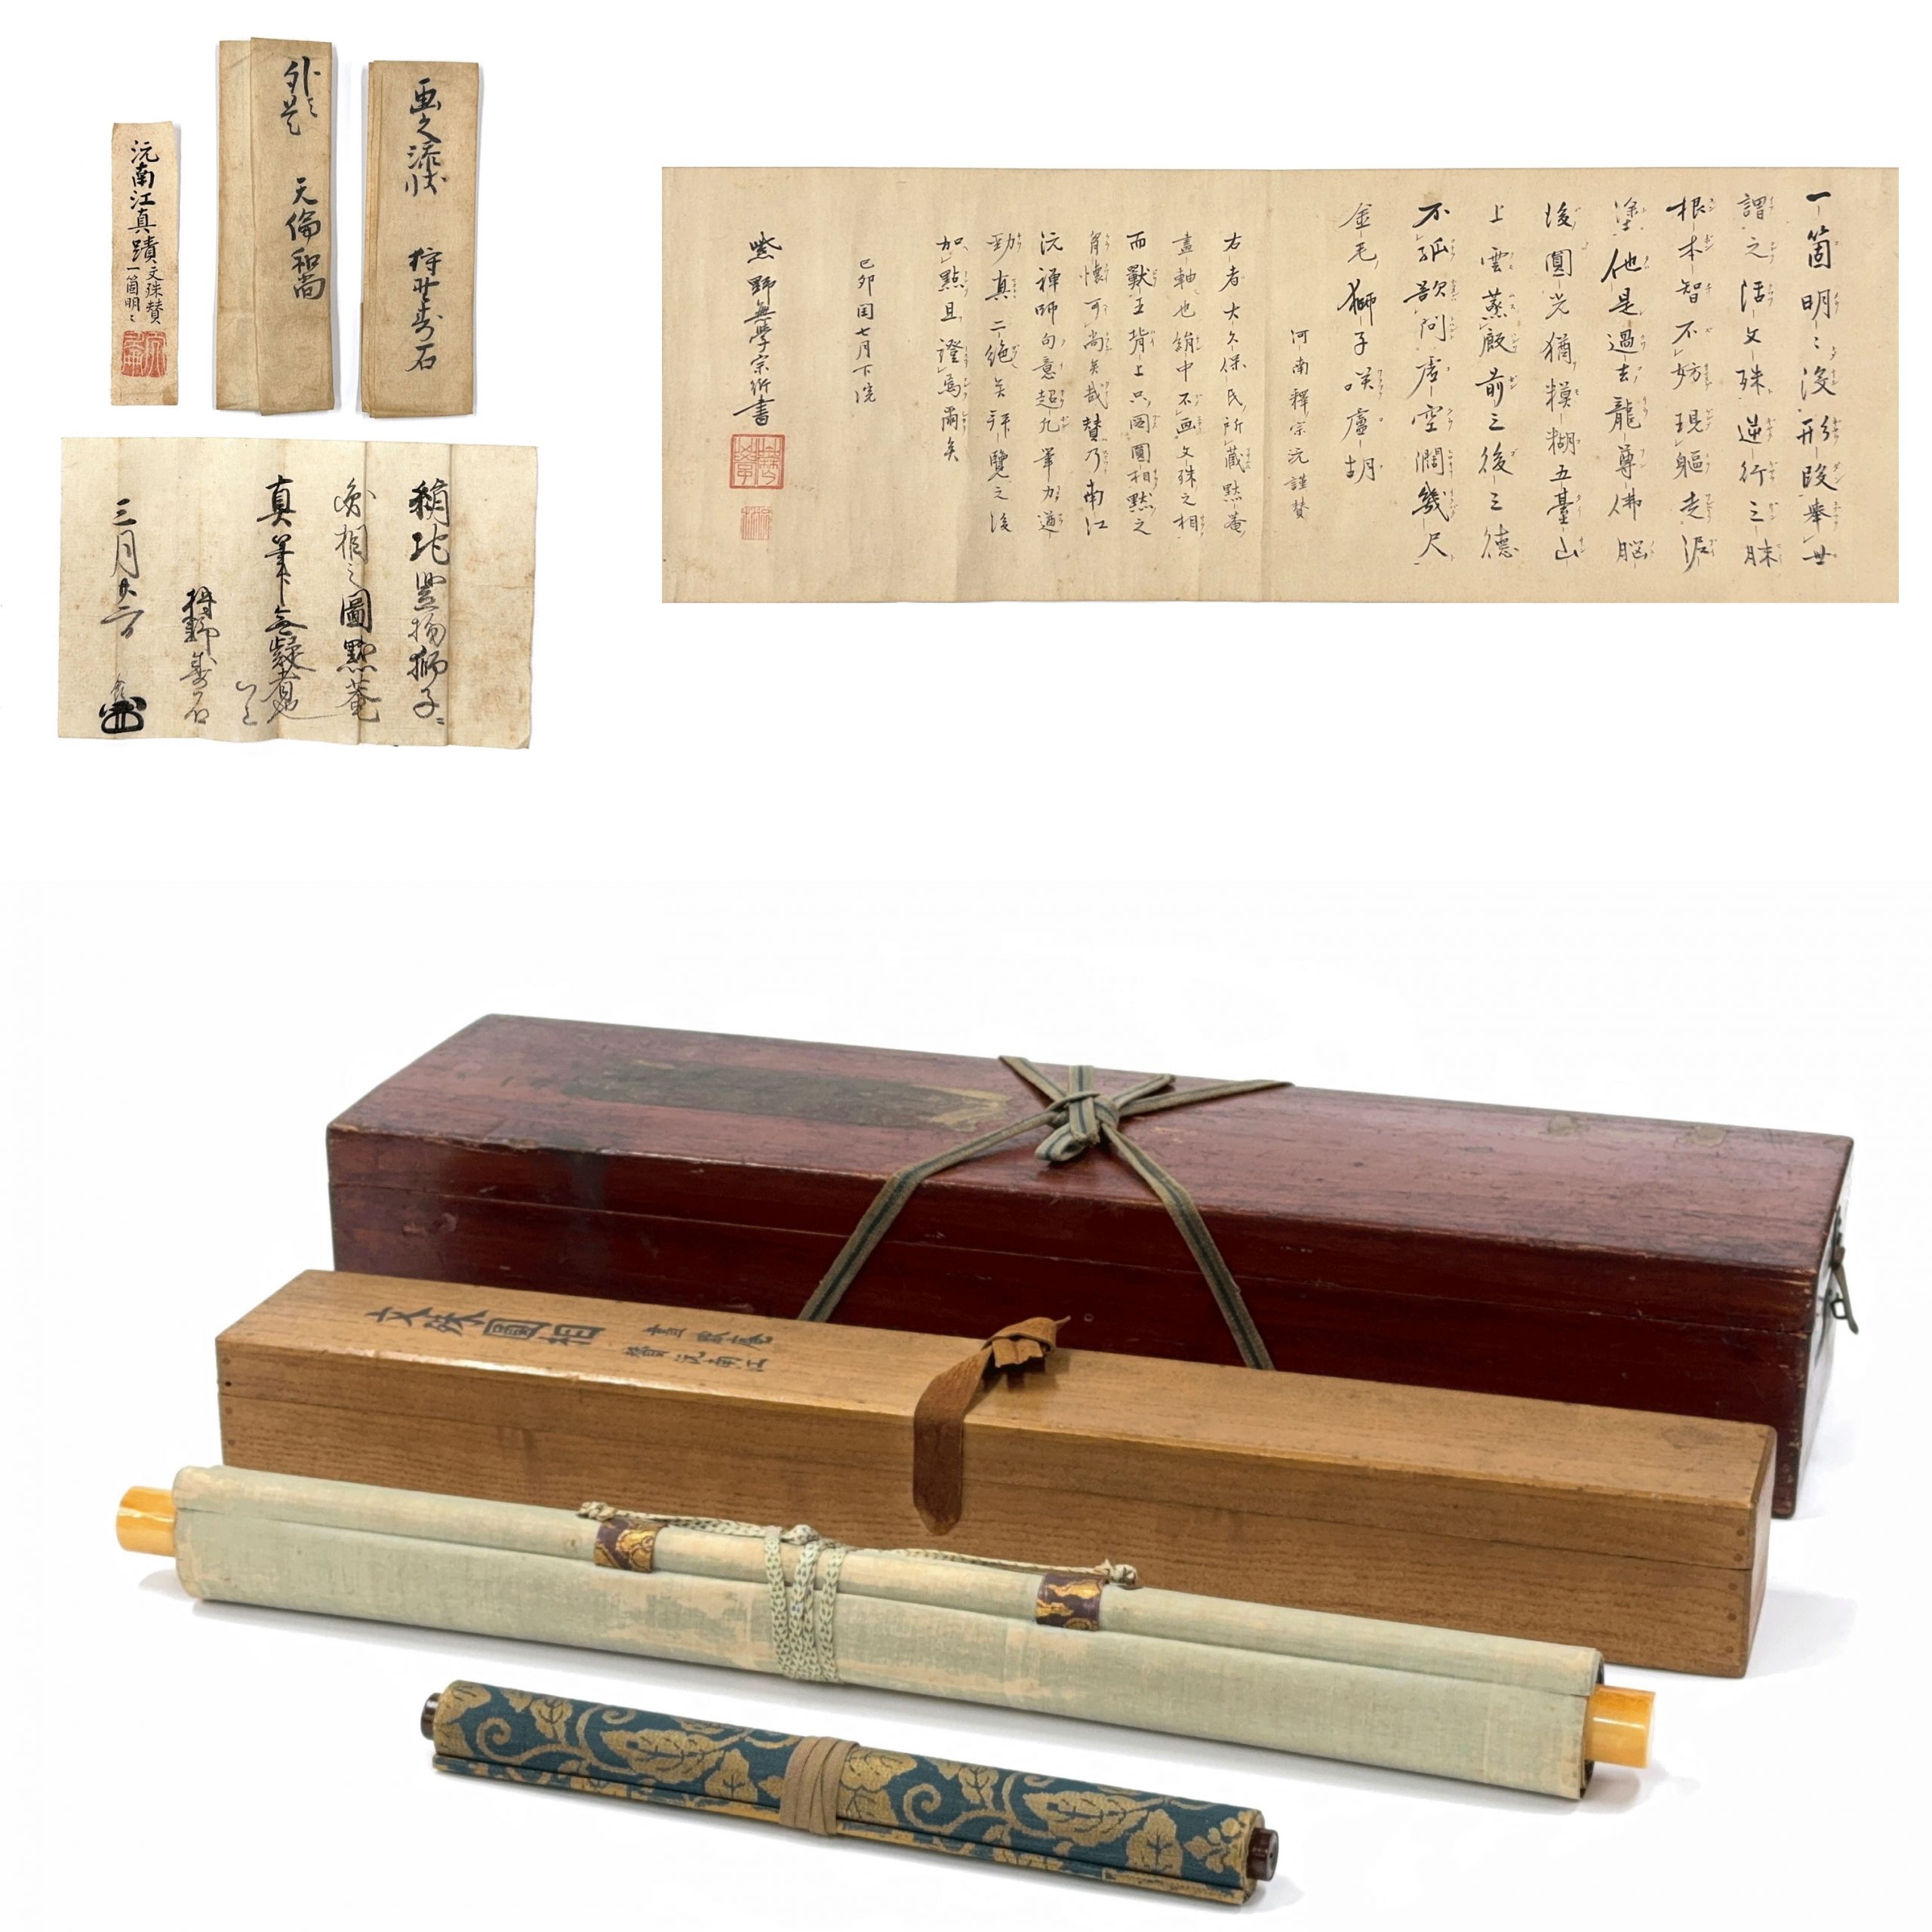 沅南江真蹟 文殊賛
一箇明〻
外題 天倫和尚
画之添状 狩野寿石
一箇明〻没形段挙世
謂之活文殊逆行三昧
根本智不妨現軀走泥
塗他是過去龍尊佛脳
後圓光猶糢糊五臺山
上雲蒸廏前三後三徳
不孤欲問虚空濶幾尺
金毛獅子咲盧胡
河南釋宗沅謹賛
右者大久保氏所藏黙菴
畫軸也絹中不画文殊之相
而獸王背上只図圓相黙之
胷懐可尚矣哉賛乃南江
沅禅師句意超凡筆力遒
勁真二絶矣拝覽之後
加點且證焉爾矣
己卯閏七月下浣
紫野無學宗衍書
圓相之圖黙菴
真筆無疑者也
狩野寿石
三月廿六日
文殊圓相
畫默庵
贊沅南江